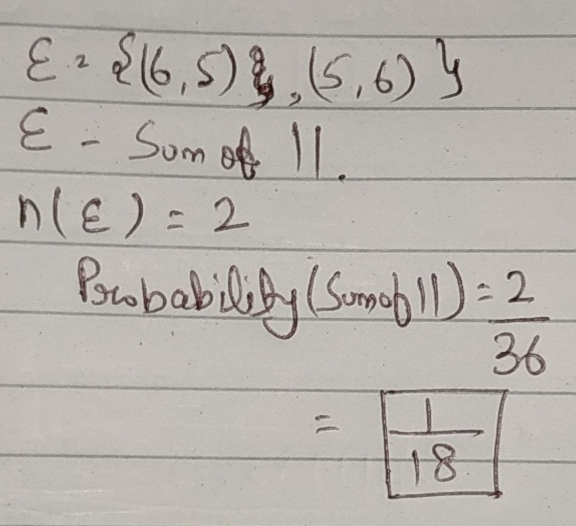 ε = {(6,5), (5,6)}
ε - Sum of 11.
n(ε) = 2
Probability (Sum of 11) = 2/36
= 1/18